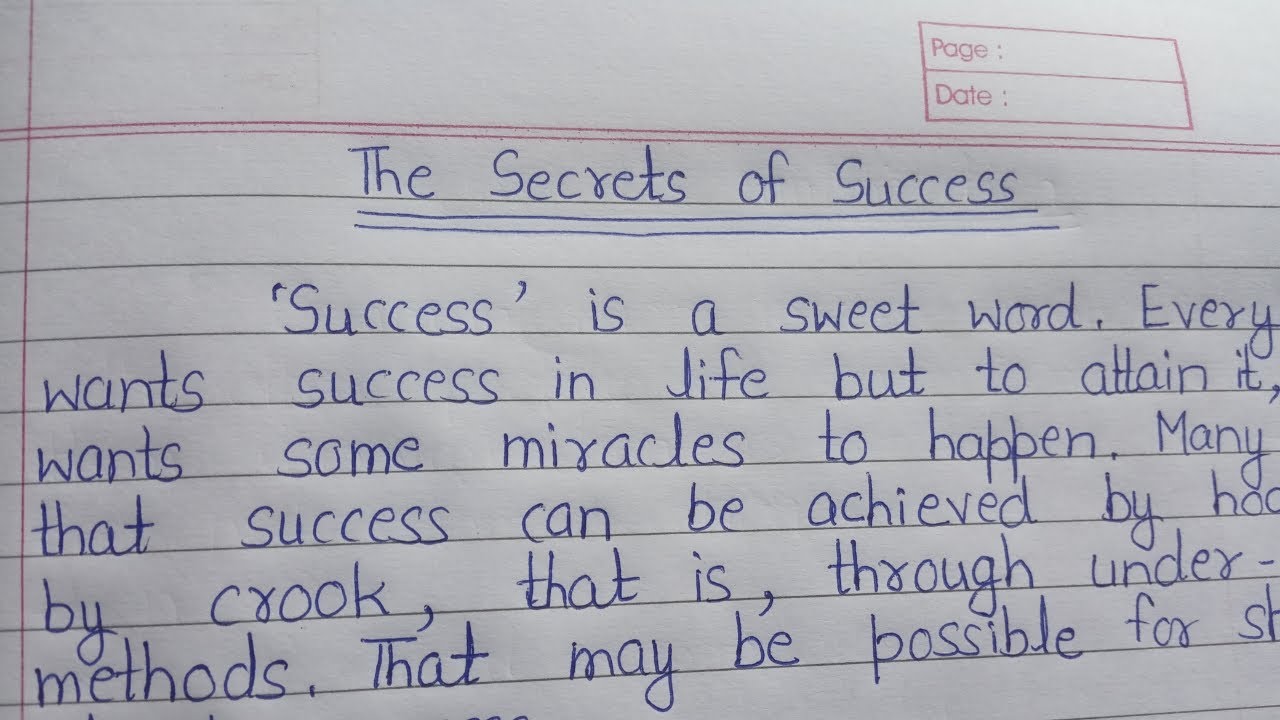 Page :
Date :
The Secrets of Success
'Success' is a sweet word. Every
wants success in life but to attain it,
wants some miracles to happen. Many
that success can be achieved by
by crook, that is, through under-
methods. That may be possible for